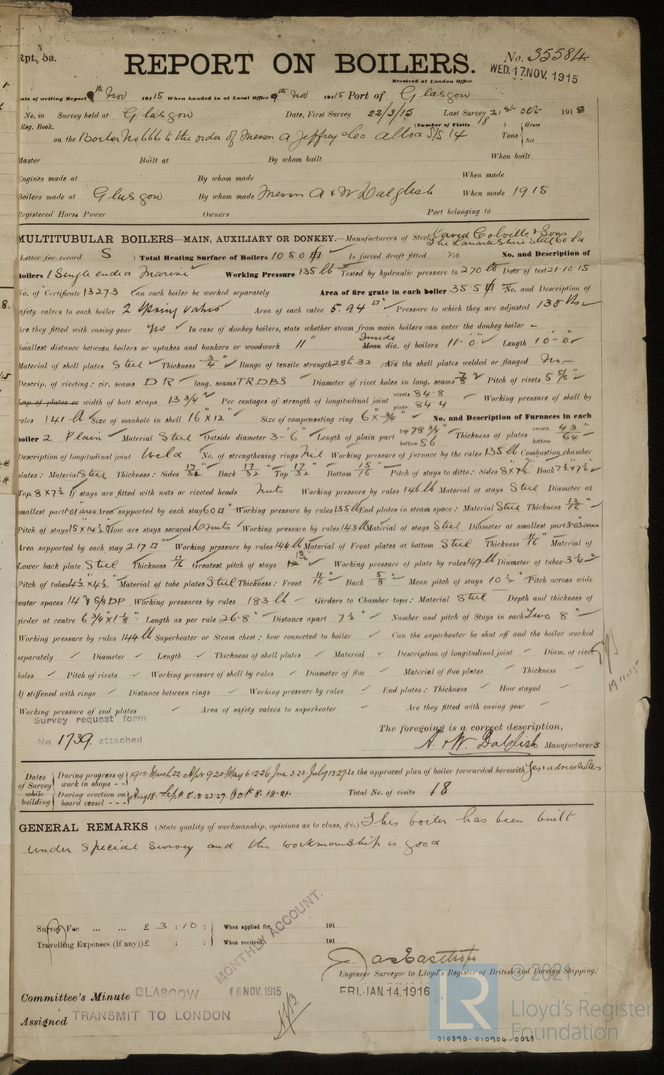 Rpt. 5a.
REPORT ON BOILERS.
No. 35584
Received at London Office WED. 17 NOV. 1915
Date of writing Report 9th Nov 1915 When handed in at Local Office 9th Nov 1915 Port of Glasgow
No. in Survey held at Glasgow Date, First Survey 22/3/15 Last Survey 21st Oct 1915
Reg. Book. (Number of Visits 18
on the Boiler No to the order of Messrs A Jeffrey & Co Alloa S/S 14 Tons Gross Net
Master Built at By whom built When built
Engines made at By whom made When made
Boilers made at Glasgow By whom made Messrs A & W Dalglish When made 1915
Registered Horse Power Owners Port belonging to
MULTITUBULAR BOILERS—MAIN, AUXILIARY OR DONKEY.—Manufacturers of Steel David Colville & Sons The Lanarkshire Steel Co Ld
Letter for record S Total Heating Surface of Boilers 1050 Is forced draft fitted no No. and Description of
Boilers 1 Single ended Marine Working Pressure 135 lb Tested by hydraulic pressure to 270 lb Date of test 21.10.15
No. of Certificate 13273 Can each boiler be worked separately Area of fire grate in each boiler 35.5 No. and Description of
safety valves to each boiler 2 Spring valves Area of each valve 5.94 Pressure to which they are adjusted 138 lbs
Are they fitted with easing gear yes In case of donkey boilers, state whether steam from main boilers can enter the donkey boiler –
Smallest distance between boilers or uptakes and bunkers or woodwork 11" Inside Mean dia. of boilers 11'-0" Length 10'-0"
Material of shell plates Steel Thickness 3/4" Range of tensile strength 28 to 32 Are the shell plates welded or flanged No
Descrip. of riveting: cir. seams DR long. seams TRDBS Diameter of rivet holes in long. seams 7/8" Pitch of rivets 5 7/8"
Lap of plates or width of butt straps 13 3/4" Per centages of strength of longitudinal joint rivets 84.8 plate 84.4 Working pressure of shell by
rules 141 lb Size of manhole in shell 16" x 12" Size of compensating ring 6" x 3/4" No. and Description of Furnaces in each
boiler 2 Plain Material Steel Outside diameter 3'-6" Length of plain part top 78 3/4" bottom 86 Thickness of plates crown bottom 43/64"
Description of longitudinal joint Weld No. of strengthening rings Nil Working pressure of furnace by the rules 135 lb Combustion chamber
plates: Material Steel Thickness: Sides 17/32" Back 17/32" Top 17/32" Bottom 15/16" Pitch of stays to ditto: Sides 8" x 7 1/2" Back 7 1/2" x 7 1/2"
Top 8 x 7 1/2 If stays are fitted with nuts or riveted heads Nuts Working pressure by rules 146 lb Material of stays Steel Diameter at
smallest part area Area supported by each stay 60 Working pressure by rules 135 lb End plates in steam space: Material Steel Thickness 13/16"
Pitch of stays 15" x 14 1/2" How are stays secured D nuts Working pressure by rules 143 lb Material of stays Steel Diameter at smallest part area
Area supported by each stay 217 Working pressure by rules 144 lb Material of Front plates at bottom Steel Thickness 11/16" Material of
Lower back plate Steel Thickness 11/16" Greatest pitch of stays Working pressure of plate by rules 147 lb Diameter of tubes 3 1/4"
Pitch of tubes 4 1/2" x 4 1/2" Material of tube plates Steel Thickness: Front 11/16" Back 5/8" Mean pitch of stays 10 1/2" Pitch across wide
water spaces 14" & S/S DP Working pressures by rules 183 lb Girders to Chamber tops: Material Steel Depth and thickness of
girder at centre 6 3/4" x 1 1/8" Length as per rule 26.8" Distance apart 7 1/2" Number and pitch of Stays in each Two 8"
Working pressure by rules 144 lb Superheater or Steam chest; how connected to boiler Can the superheater be shut off and the boiler worked
separately Diameter Length Thickness of shell plates Material Description of longitudinal joint Diam. of rivet
holes Pitch of rivets Working pressure of shell by rules Diameter of flue Material of flue plates Thickness
If stiffened with rings Distance between rings Working pressure by rules End plates: Thickness How stayed
Working pressure of end plates Area of safety valves to superheater Are they fitted with easing gear
19.11.15
Survey request form
No. 1739 attached
The foregoing is a correct description,
A. & W. Dalglish Manufacturers
Dates of Survey while building
During progress of work in shops - - 1915 March 22 Apr 9 20 May 6 12 26 Jun 3 23 July 13 27 Is the approved plan of boiler forwarded herewith
During erection on board vessel - - - Aug 18 Sept 8.13.22.27. Oct 8.19.21. Total No. of visits 18
GENERAL REMARKS (State quality of workmanship, opinions as to class, &c.) This boiler has been built
under special survey and the workmanship is good
Survey Fee ... ... £ 3 : 10 : When applied for, 191
Travelling Expenses (if any) £ : : When received, 191
MONTHLY ACCOUNT.
Engineer Surveyor to Lloyd's Register of British and Foreign Shipping.
Committee's Minute GLASGOW 16 NOV. 1915 FRI. JAN. 14. 1916
Assigned TRANSMIT TO LONDON
LR
© 2021
Lloyd's Register
Foundation
010890-010904-0029